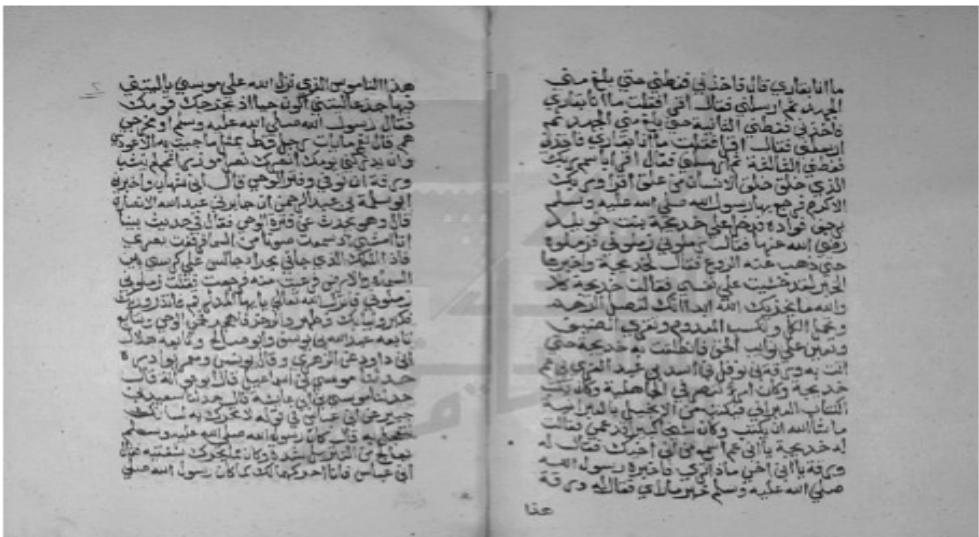 ما انا بقاري قال فاخذني فغطني حتى بلغ مني
الجهد ثم ارسلني فقال اقرا فقلت ما انا بقاري
فاخذني فغطني الثانية حتى بلغ مني الجهد ثم
ارسلني فقال اقرا فقلت ما انا بقاري فاخذني
فغطني الثالثة ثم ارسلني فقال اقرا باسم ربك
الذي خلق خلق الانسان من علق اقرا وربك
الاكرم فرجع بها رسول الله صلي الله عليه وسلم
يرجف فواده فدخل علي خديجة بنت خويلد
رضي الله عنها فقال زملوني زملوني فزملوه
حتي ذهب عنه الروع فقال لخديجة واخبرها
الخبر لقد خشيت علي نفسي فقالت خديجة كلا
والله ما يخزيك الله ابدا انك لتصل الرحم
وتحمل الكل وتكسب المعدوم وتقري الضيف
وتعين علي نوايب الحق فانطلقت به خديجة حتي
اتت به ورقة بن نوفل بن اسد بن عبد العزي بن عم
خديجة وكان امرا تنصر في الجاهلية وكان يكتب
الكتاب العبراني فيكتب من الانجيل بالعبرانية
ما شا الله ان يكتب وكان شيخا كبيرا قد عمي فقالت
له خديجة يا ابن عم اسمع من ابن اخيك فقال له
ورقة يا ابن اخي ماذا تري فاخبره رسول الله
صلي الله عليه وسلم خبر ما راي فقال له ورقة
هذا
هذا الناموس الذي نزل الله علي موسي يا ليتني
فيها جذعا ليتني اكون حيا اذ يخرجك قومك
فقال رسول الله صلي الله عليه وسلم او مخرجي
هم قال نعم لم يات رجل قط بمثل ما جيت به الا عودي
وان يدركني يومك انصرك نصرا موزرا ثم لم ينشب
ورقة ان توفي وفتر الوحي قال ابن شهاب واخبرني
ابو سلمة بن عبد الرحمن ان جابر بن عبد الله الانصاري
قال وهو يحدث عن فترة الوحي فقال في حديثه بينا
انا امشي اذ سمعت صوتا من السما فرفعت بصري
فاذا الملك الذي جاني بحرا جالس علي كرسي بين
السما والارض فرعبت منه فرجعت فقلت زملوني
زملوني فانزل الله تعالي يا ايها المدثر قم فانذر وربك
فكبر وثيابك فطهر والرجز فاهجر فحمي الوحي وتتابع
تابعه عبد الله بن يوسف وابو صالح وتابعه هلال
بن رداد عن الزهري وقال يونس ومعمر بوادره
حدثنا موسي بن اسماعيل قال ابو عوانة قال
حدثنا موسي بن ابي عايشة قال حدثنا سعيد بن
جبير عن ابن عباس في قوله لا تحرك به لسانك
لتعجل به قال كان رسول الله صلي الله عليه وسلم
يعالج من التنزيل شدة وكان مما يحرك شفتيه فقال
ابن عباس فانا احركهما لك كما كان رسول الله صلي